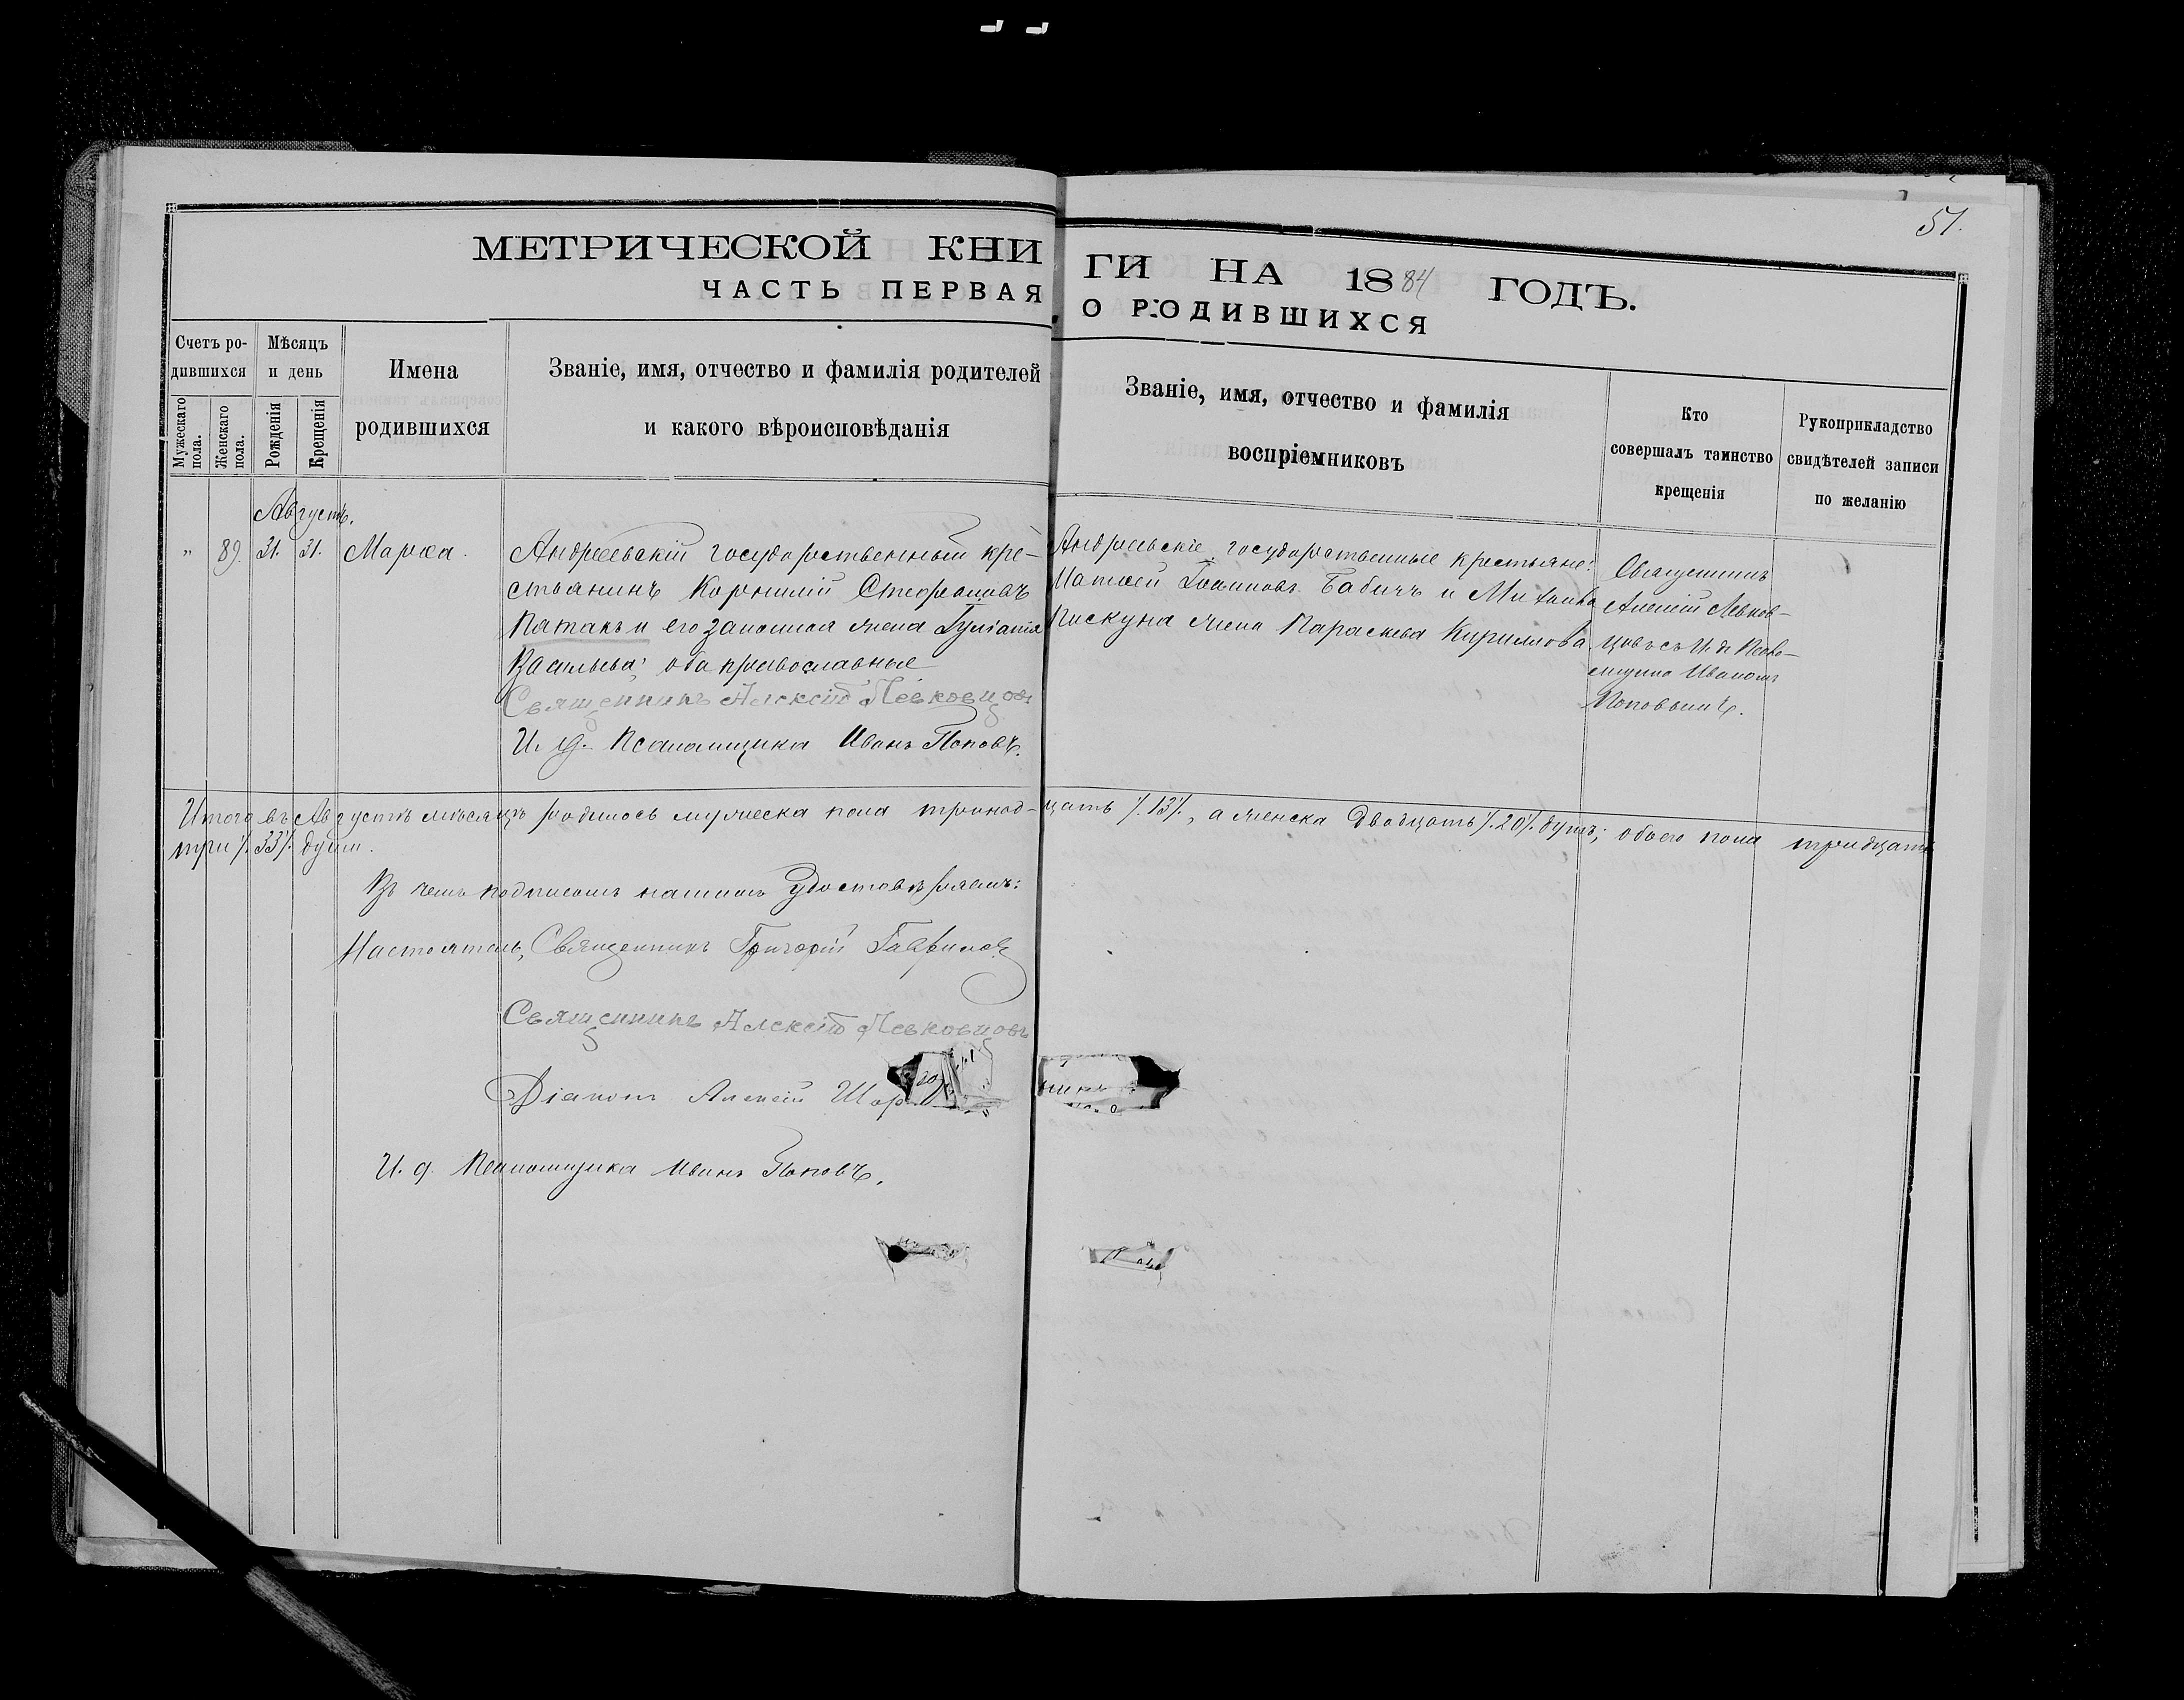 51.
МЕТРИЧЕСКОЙ КНИГИ НА 1884 ГОДЪ.
ЧАСТЬ ПЕРВАЯ О РОДИВШИХСЯ
Счетъ ро-
дившихся
Мужескаго пола.
Женскаго пола.
Мѣсяцъ
и день
Рожденія
Крещенія
Имена
родившихся
Званіе, имя, отчество и фамилія родителей
и какого вѣроисповѣданія
Званіе, имя, отчество и фамилія
воспріемниковъ
Кто
совершалъ таинство
крещенія
Рукоприкладство
свидѣтелей записи
по желанію
Августъ.
" 89. 31. 31. Марѳа.
Андреевскій государственный кре-
стьянинъ Корнилій Стефановъ
Пятакъ и его законная жена Іуліанія
Васильева; оба православные
Священникъ Алексій Левковцовъ
И. д. Псаломщика Иванъ Поповъ.
Андреевскіе государственные крестьяне:
Матѳей Іоанновъ Бабичъ и Михаила
Пискуна жена Параскева Кириллова.
Священникъ
Алексій Левков-
цовъ съ И. д. Псало-
мщика Иваномъ
Поповымъ.
Итого въ Августѣ мѣсяцѣ родилось мужеска пола тринад-цать /.13/., а женска двадцать /.20/. душъ; обоего пола тридцать
три /.33/. души.
Въ чемъ подписомъ нашимъ удостовѣряемъ:
Настоятель, Священникъ Григорій Гаврилов
Священникъ Алексій Левковцовъ
Діаконъ Алексій
И. д. Псаломщика Иванъ Поповъ.